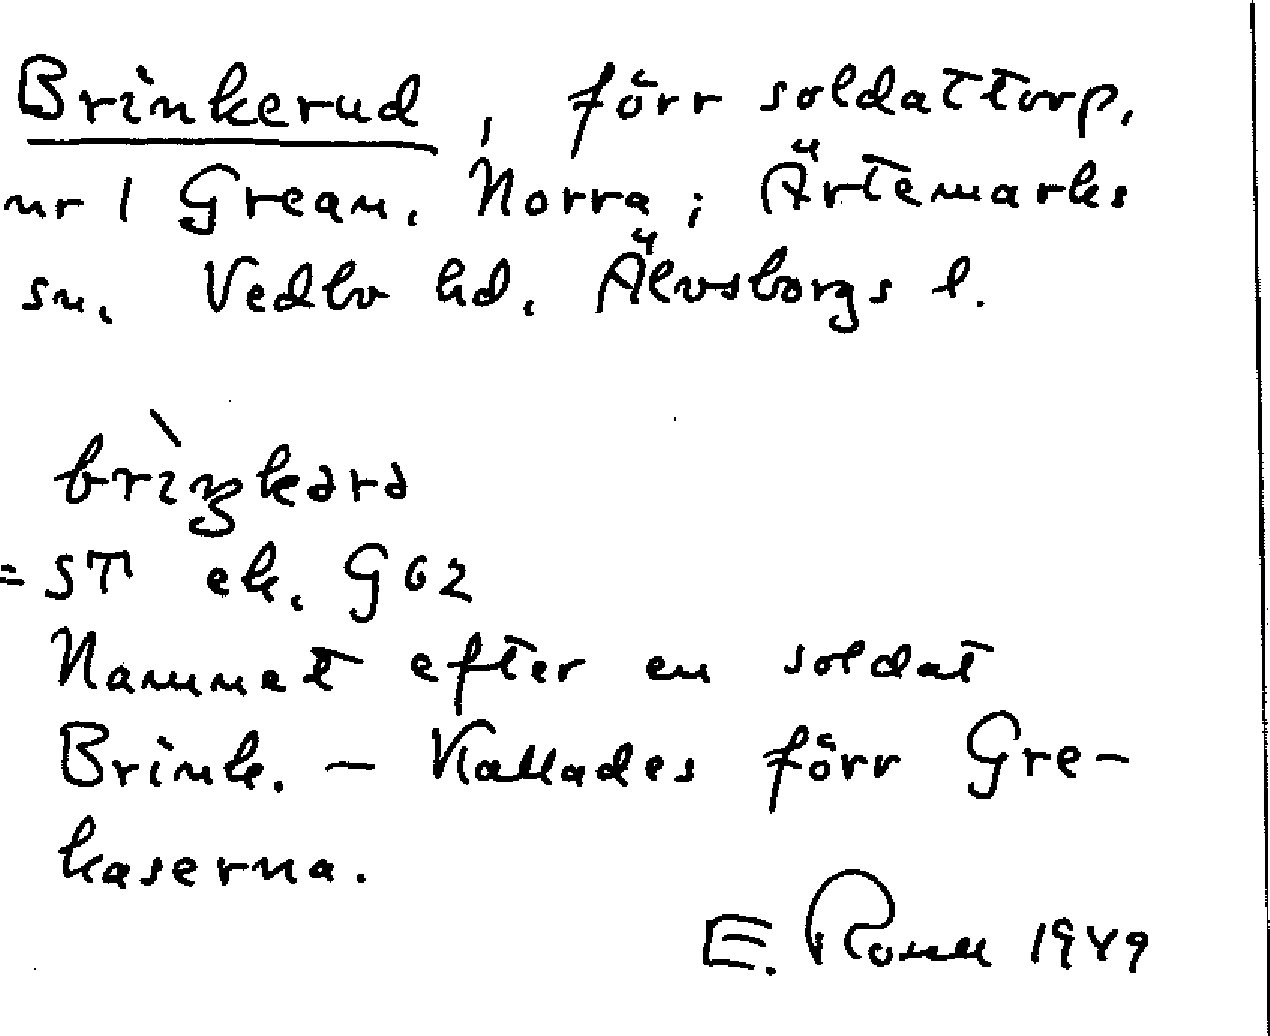 Brinkerud, förr soldattorp,
nr 1 Grean. Norra; Ärtemarks
sn. Vedbo hd. Älvsborgs l.
brìŋkərə
= ST ek. G62
Namnet efter en soldat
Brink. – Kallades förr Gre-
kaserna.
E. 1949